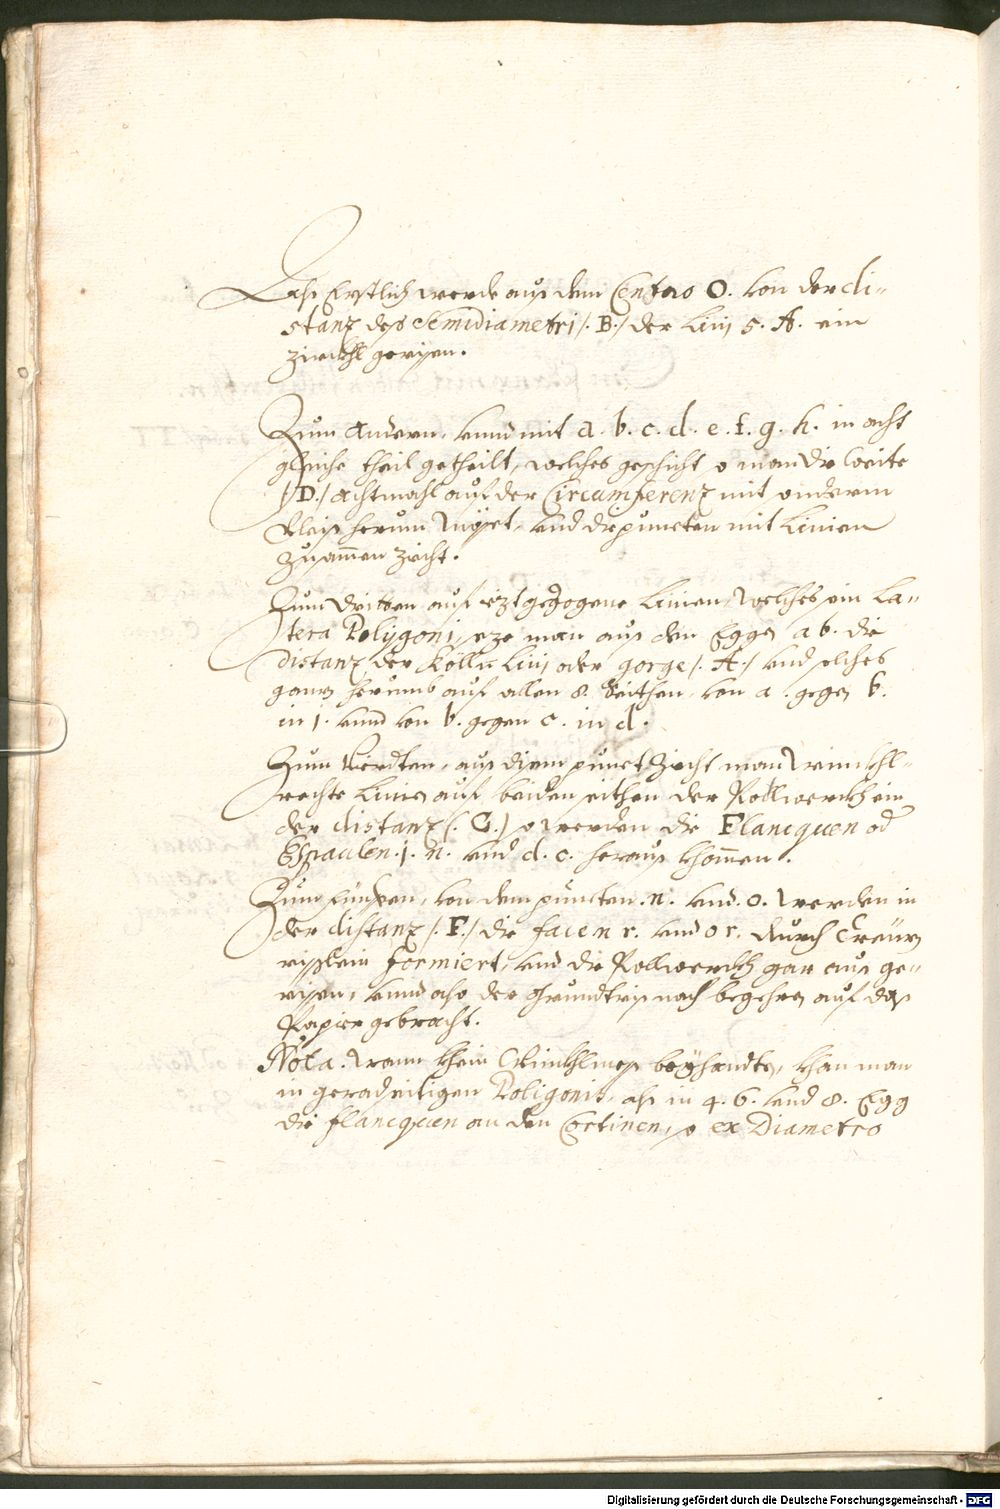 Als Erstlich werde aus dem Centro O. von der di-
stanz des Semidiametri /. B./ der Linj 5. A. ein
Zürckhl gerissen.
Zum Andern, vnnd mit a. b. c. d. e. f. g. h. in acht
gleiche theil getheilt, welches geschicht so man die Weite
/D./ achtmahl auf der Circumferenz mit
herum vnd die puncten mit Linien
Zusamen Zieht.
Zum Dritten auf jetztgezogene Linien, welches ein La-
tera Poligoni, seze man aus den Eggen a b. die
distanz der Köllen Linj oder gorge /. A./ vnd solches
ganz herumb auf allen 8. Seithen, von a. gegen b.
in i. vnnd von b. gegen c. in d.
Zum Vierdten, aus disem punct Zieht man Winckhl-
rechte Linien auf beiden seithen der Bollwerckh ein
der distanz /. C./ so werden die Flancquen od
Espaulen. i. n. vnd d. o. heraus khommen.
Zum Fünften, von dem puncten. n. vnd. o. werden in
der distanz /. F./ die facen r. vnd o r. durch Creüz
rißlein formiert, vnd die Bollwerckh gar aus ge-
rissen, vnnd also der Grundtriß nach begehren auf das
Papier gebracht.
Nota. Wann khein Winckhlmaß beÿhandten, khan man
in geradseitigen Poligonis, als in 4. 6. vnd 8. Egg
die flancquen an den Cortinen, so ex Diametro
Digitalisierung gefördert durch die Deutsche Forschungsgemeinschaft - DFG